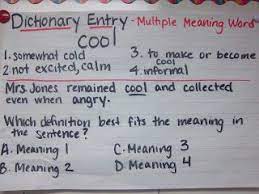 Dictionary Entry - Multiple Meaning Word
cool
1. somewhat cold 3. to make or become cool
2 not excited, calm 4. informal
Mrs. Jones remained cool and collected
even when angry.
Which definition best fits the meaning in
the sentence?
A. Meaning 1 C. Meaning 3
B. Meaning 2 D. Meaning 4